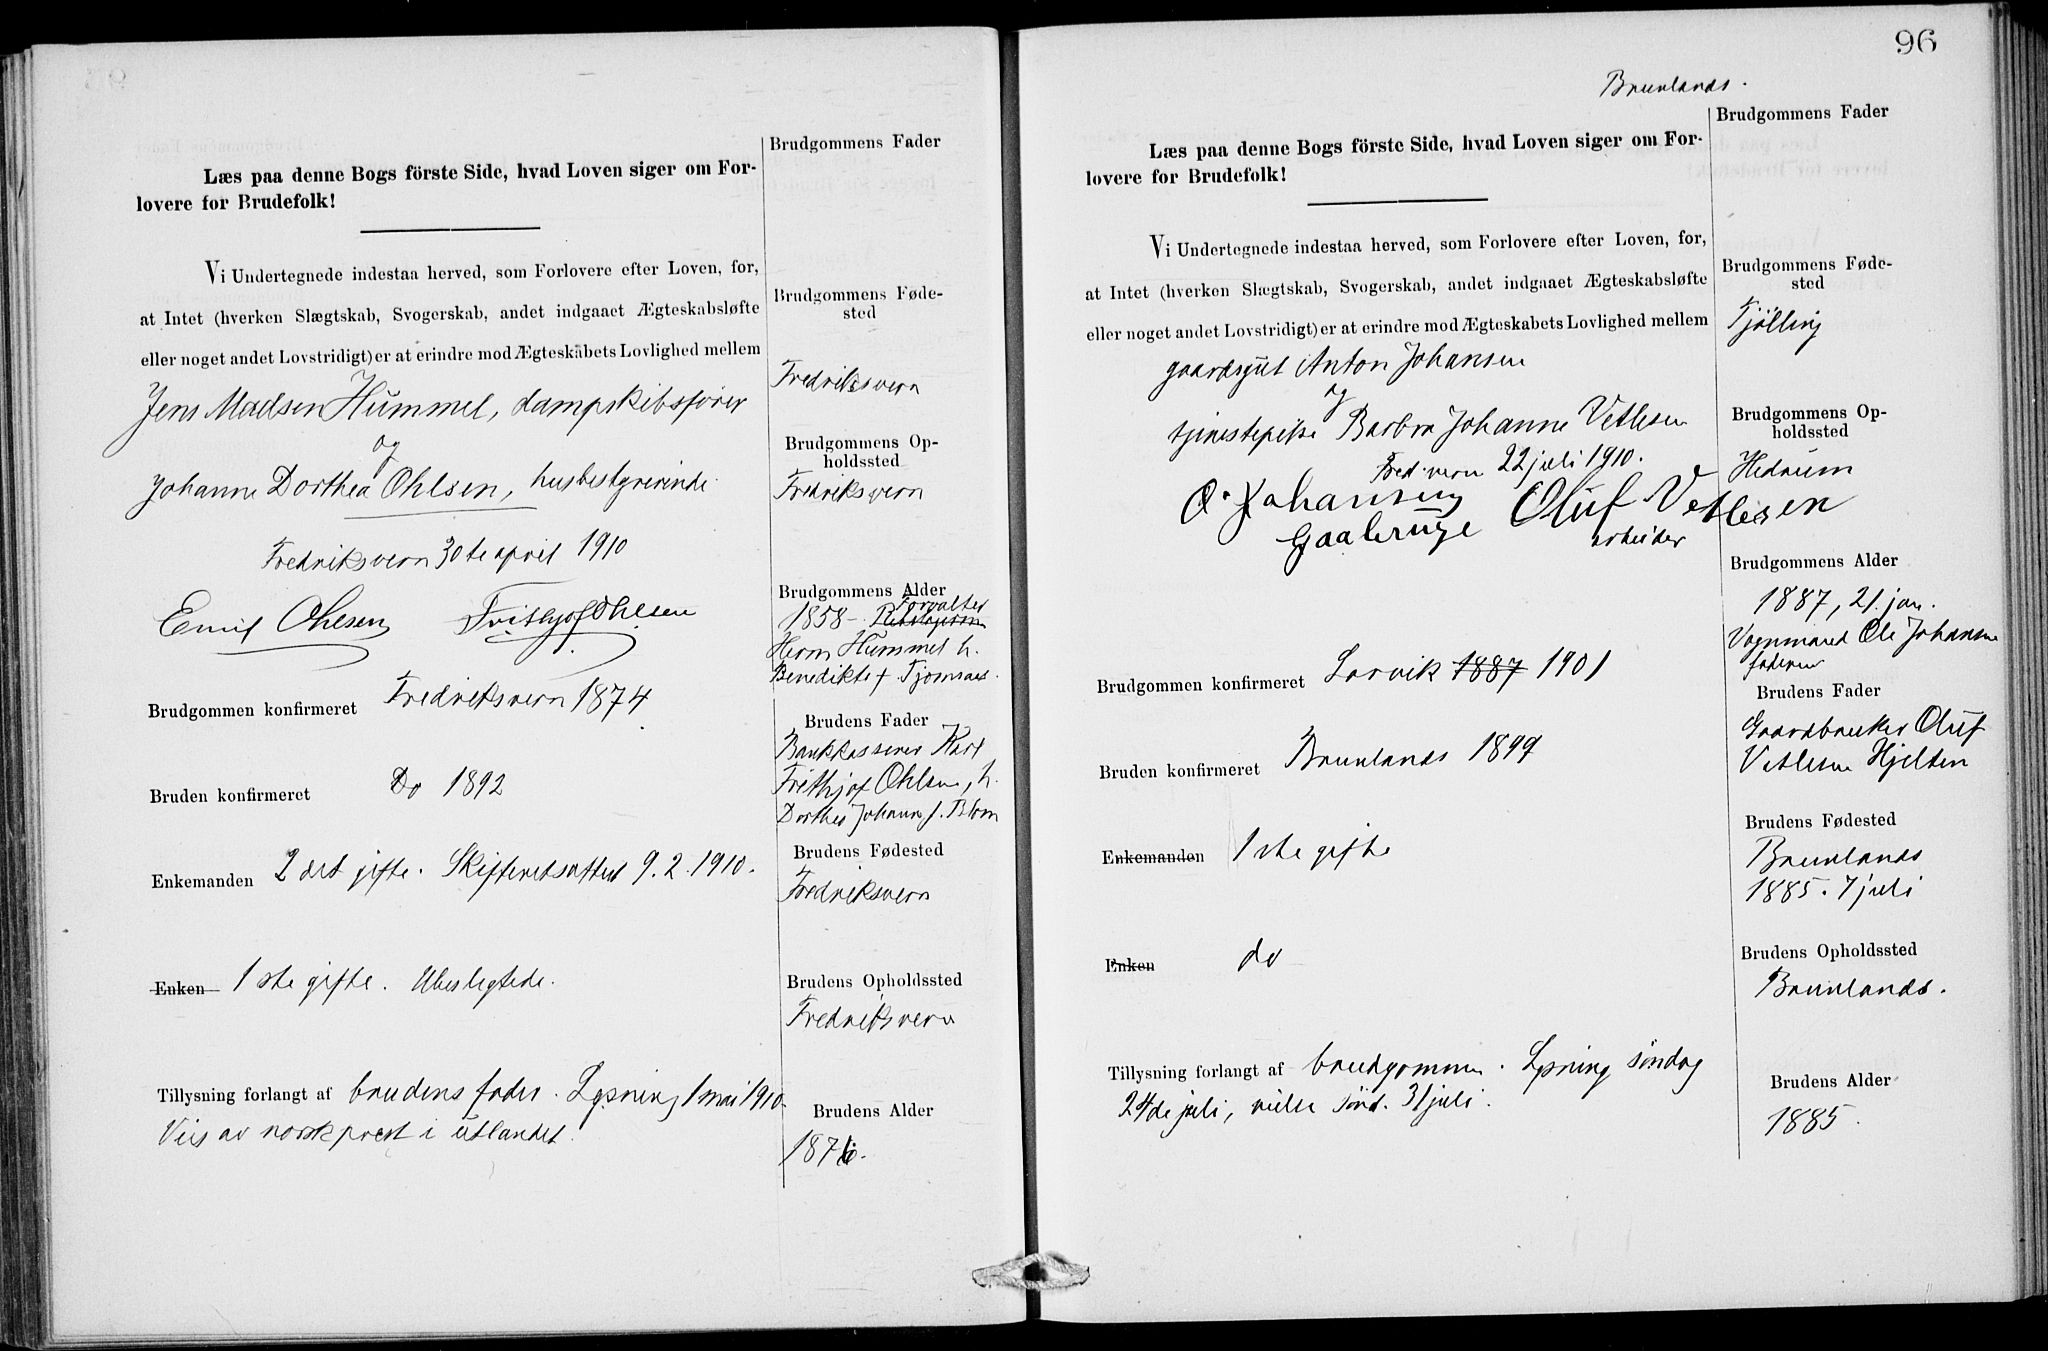 Læs paa denne Bogs förste Side, hvad Loven siger om For-
lovere for Brudefolk!
Vi Undertegnede indestaa herved, som Forlovere efter Loven, for,
at Intet (hverken Slægtskab, Svogerskab, andet indgaaet Ægteskabsløfte
eller noget andet Lovstridigt) er at erindre mod Ægteskabets Lovlighed mellem
Jens Madsen Hummel, dampskibsfører
og
Johanne Dorthea Ohlsen, husbestyrerinde
Fredriksvern 30te april 1910
Emil Ohlsen Frithjof Ohlsen
Brudgommen konfirmeret Fredriksvern 1874
Bruden konfirmeret Do 1892
Enkemanden 2det gifte. Skifteretsattest 9.2.1910.
Enken 1ste gifte. Ubeslegtede.
Tillysning forlangt af brudens fader. Lysning 1 mai 1910
Vies av norsk prest i utlandet.
Brudgommens Fader
Brudgommens Føde-
sted
Fredriksvern
Brudgommens Op-
holdssted
Fredriksvern
Brudgommens Alder
Forvalter
1858 –
Herm Hummel h.
Benedikte f. Tjomsaas.
Brudens Fader
Bankkasserer Karl
Frithjof Ohlsen, h.
Dorthea Johanne f. Blom
Brudens Fødested
Fredriksvern
Brudens Opholdssted
Fredriksvern
Brudens Alder
1876.
96
Brunlands.
Læs paa denne Bogs förste Side, hvad Loven siger om For-
lovere for Brudefolk!
Vi Undertegnede indestaa herved, som Forlovere efter Loven, for,
at Intet (hverken Slægtskab, Svogerskab, andet indgaaet Ægteskabsløfte
eller noget andet Lovstridigt) er at erindre mod Ægteskabets Lovlighed mellem
gaardsgut Anton Johansen
og
tjenestepike Barbra Johanne Vetlesen
Fred.vern 22 juli 1910.
O. Johansen Oluf Vetlesen
arbeider
Brudgommen konfirmeret Larvik 1887 1901
Bruden konfirmeret Brunlands 1899
Enkemanden 1ste gifte
Enken do
Tillysning forlangt af brudgommen. Lysning søndag
24de juli, vielse sönd. 31 juli.
Brudgommens Fader
Brudgommens Føde-
sted
Tjølling
Brudgommens Op-
holdssted
Hedrum
Brudgommens Alder
1887, 21. jan.
Vognmand Ole Johansen
faderen
Brudens Fader
Gaardbruker Oluf
Vetlesen Hjelten
Brudens Fødested
Brunlands
1885. 7 juli
Brudens Opholdssted
Brunlands.
Brudens Alder
1885.